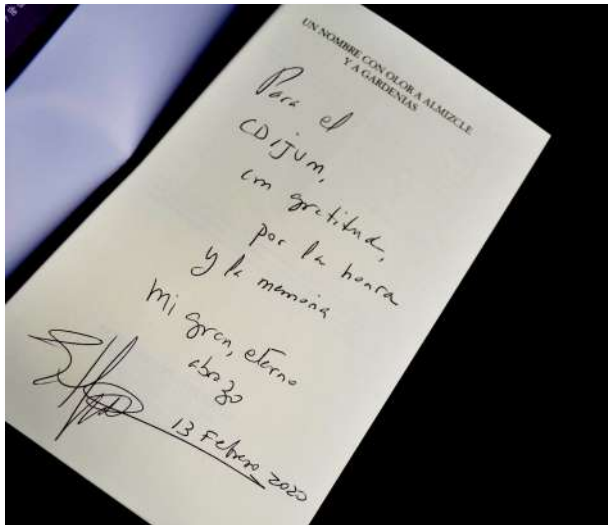 UN NOMBRE CON OLOR A ALMIZCLE
Y A GARDENIAS
Para el
CDIJUM,
con gratitud,
por la honra
y la memoria
Mi gran, eterno
abrazo
13 Febrero 2020